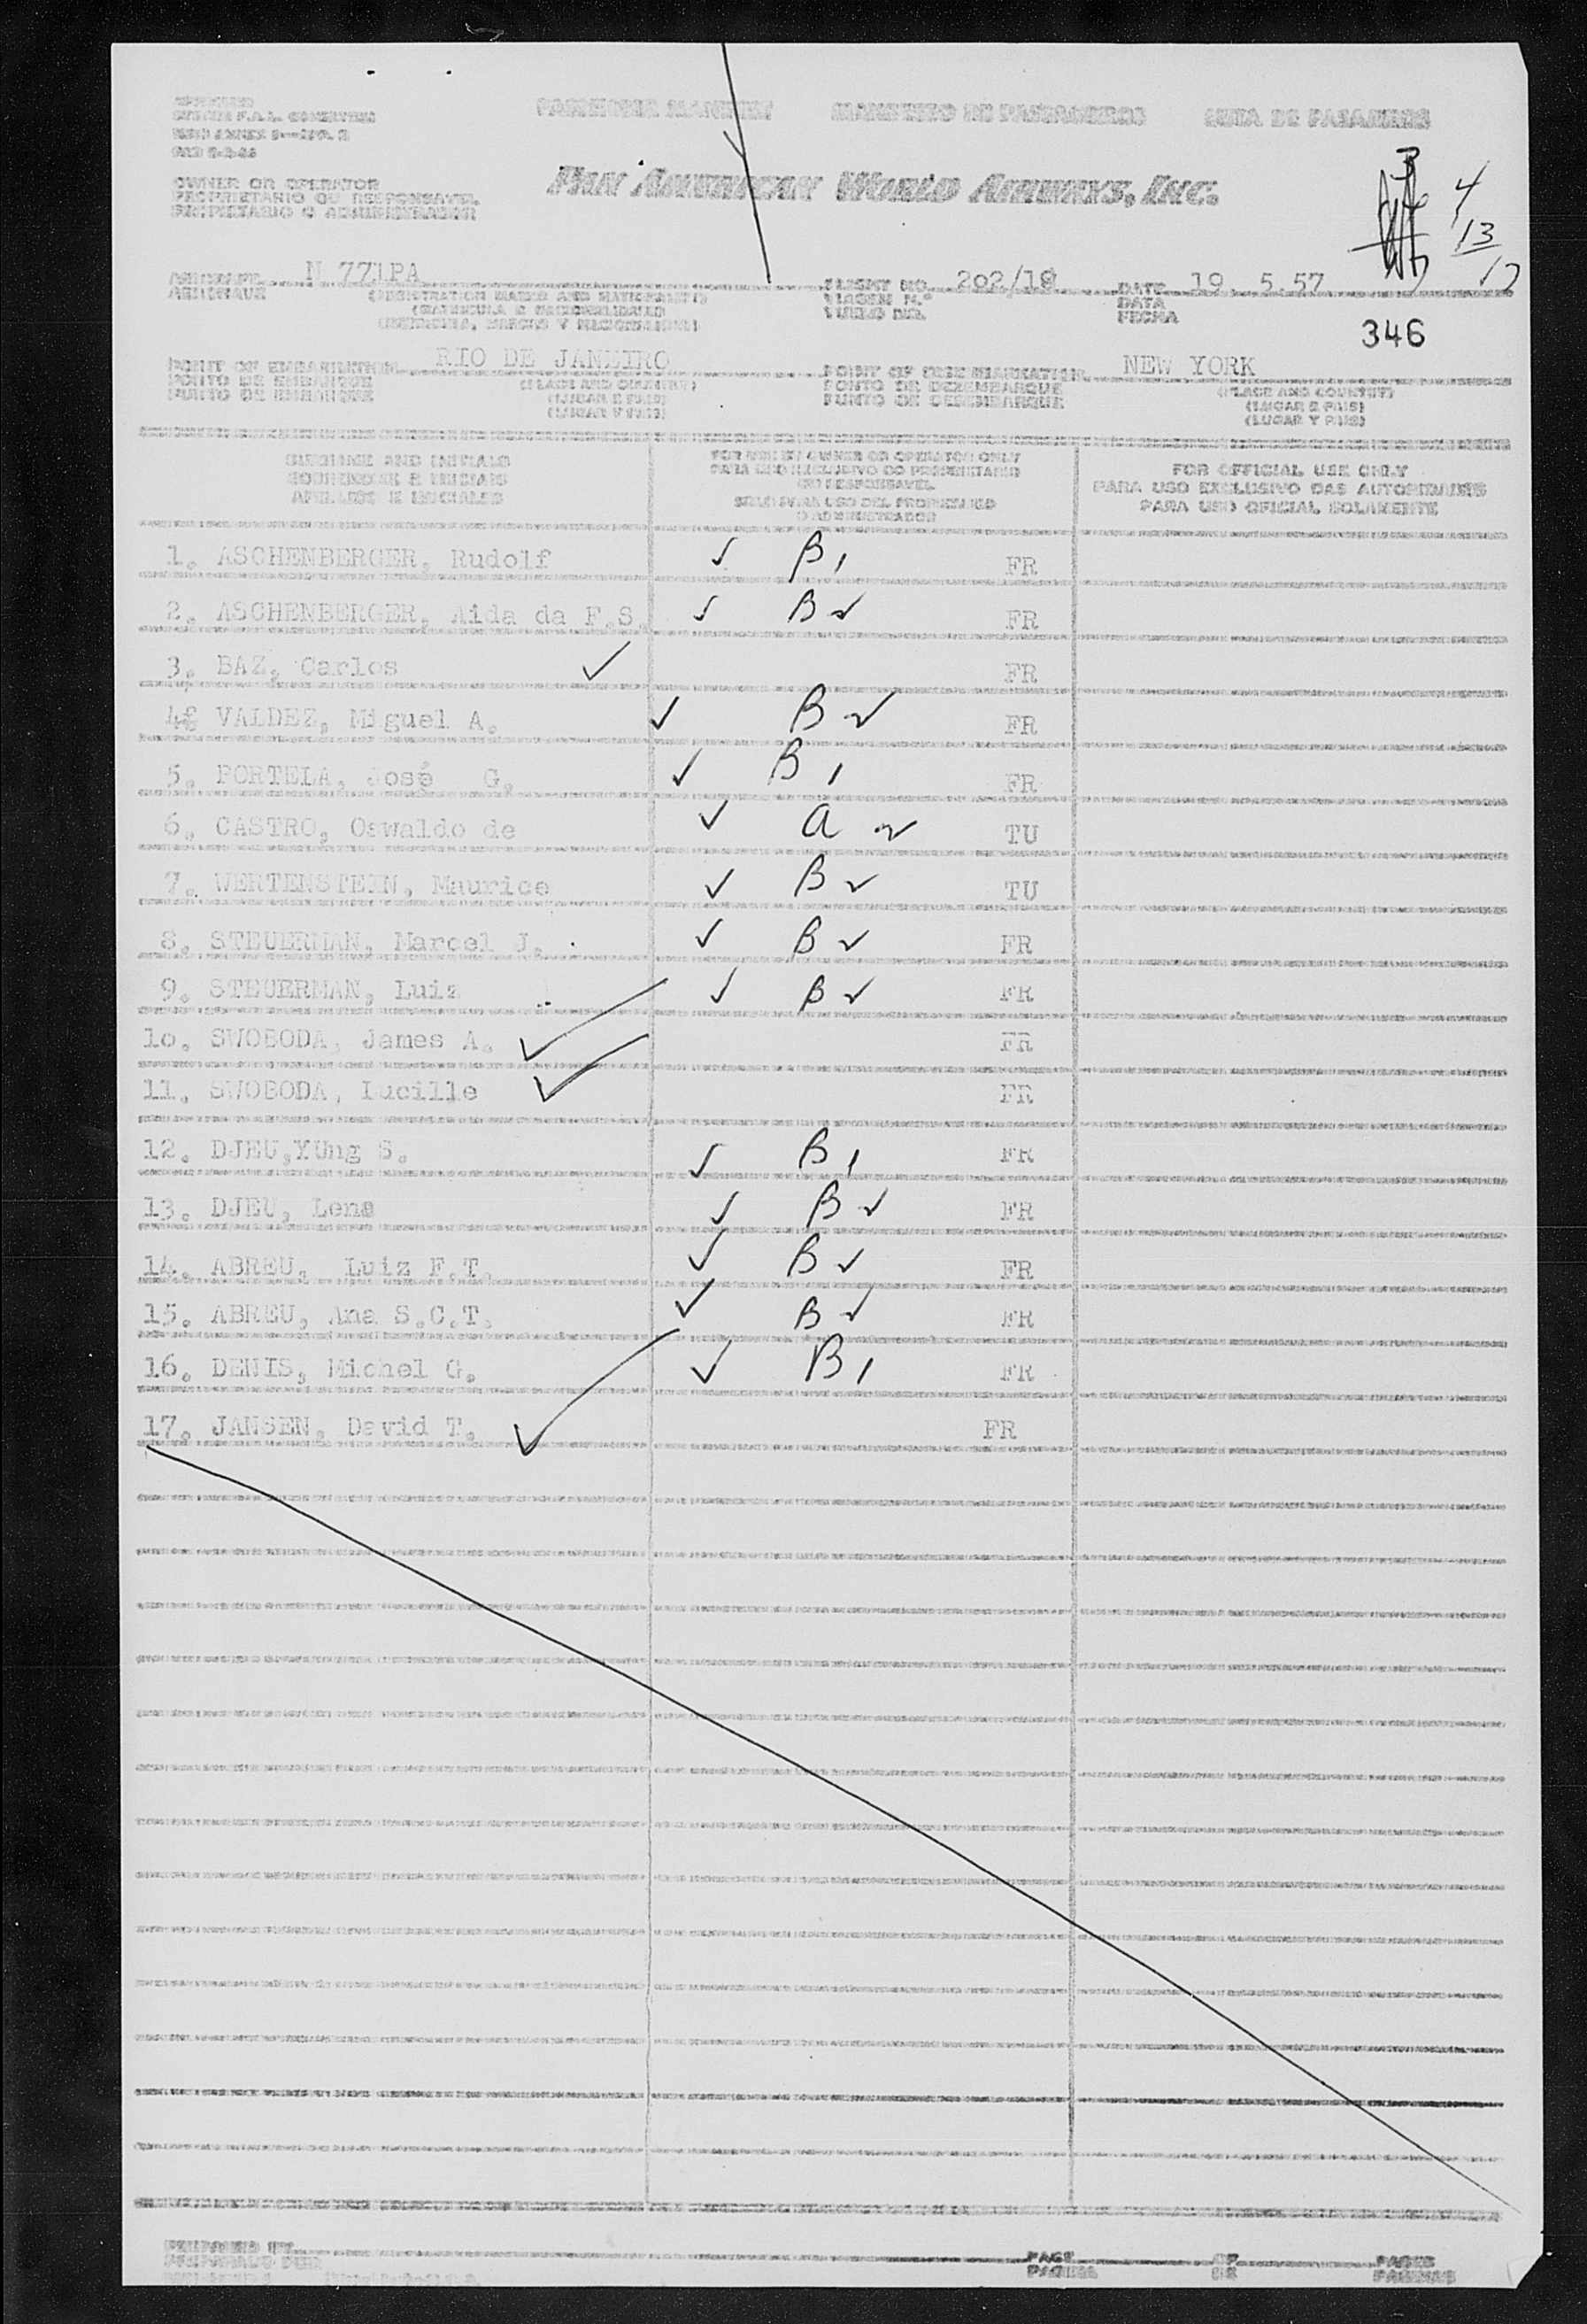 PASSENGER MANIFEST MANIFESTO DE PASSAGEIROS LISTA DE PASAJEROS
OWNER OR OPERATOR
PROPRIETARIO OU RESPONSAVEL
PROPIETARIO O ADMINISTRADOR
PAN AMERICAN WORLD AIRWAYS, INC.
3
4
13
17
AIRCRAFT N 771PA FLIGHT NO. 202/18 DATE 19. 5.57
AERONAVE (REGISTRATION MARKS AND NATIONALITY) VIAGEM N.º DATA
(MATRICULA E NACIONALIDADE) VUELO NO. FECHA
346
POINT OF EMBARKATION RIO DE JANEIRO POINT OF DISEMBARKATION NEW YORK
PONTO DE EMBARQUE (PLACE AND COUNTRY) PONTO DE DESEMBARQUE (PLACE AND COUNTRY)
PUNTO DE EMBARQUE (LUGAR E PAIS) PUNTO DE DESEMBARQUE (LUGAR E PAIS)
(LUGAR Y PAIS) (LUGAR Y PAIS)
SURNAME AND INITIALS FOR USE BY OWNER OR OPERATOR ONLY FOR OFFICIAL USE ONLY
SOBRENOME E INICIAIS PARA USO EXCLUSIVO DO PROPRIETARIO PARA USO EXCLUSIVO DAS AUTORIDADES
APELLIDO E INICIALES OU RESPONSAVEL PARA USO OFICIAL SOLAMENTE
O ADMINISTRADOR
1. ASCHENBERGER, Rudolf ✓ B 1 FR
2. ASCHENBERGER, Aida da F.S. ✓ B 2 FR
3. BAZ, Carlos ✓ FR
4. VALDEZ, Miguel A. ✓ B 2 FR
5. PORTELA, José G. ✓ B 1 FR
6. CASTRO, Oswaldo de ✓ A 2 TU
7. WERTENSTEIN, Maurice ✓ B 2 TU
8. STEUERMAN, Marcel J. ✓ B 2 FR
9. STEUERMAN, Luiz ✓ B 2 FR
10. SWOBODA, James A. ✓ FR
11. SWOBODA, Lucille ✓ FR
12. DJEU,YUng S. ✓ B 1 FR
13. DJEU, Lena ✓ B 2 FR
14. ABREU, Luiz F.T. ✓ B 2 FR
15. ABREU, Ana S.C.T. ✓ B 2 FR
16. DENIS, Michel G. ✓ B 1 FR
17. JANSEN, David T. ✓ FR
PREPARED BY PAGE OF PAGES
PREPARADO POR PAGINA DE PAGINAS